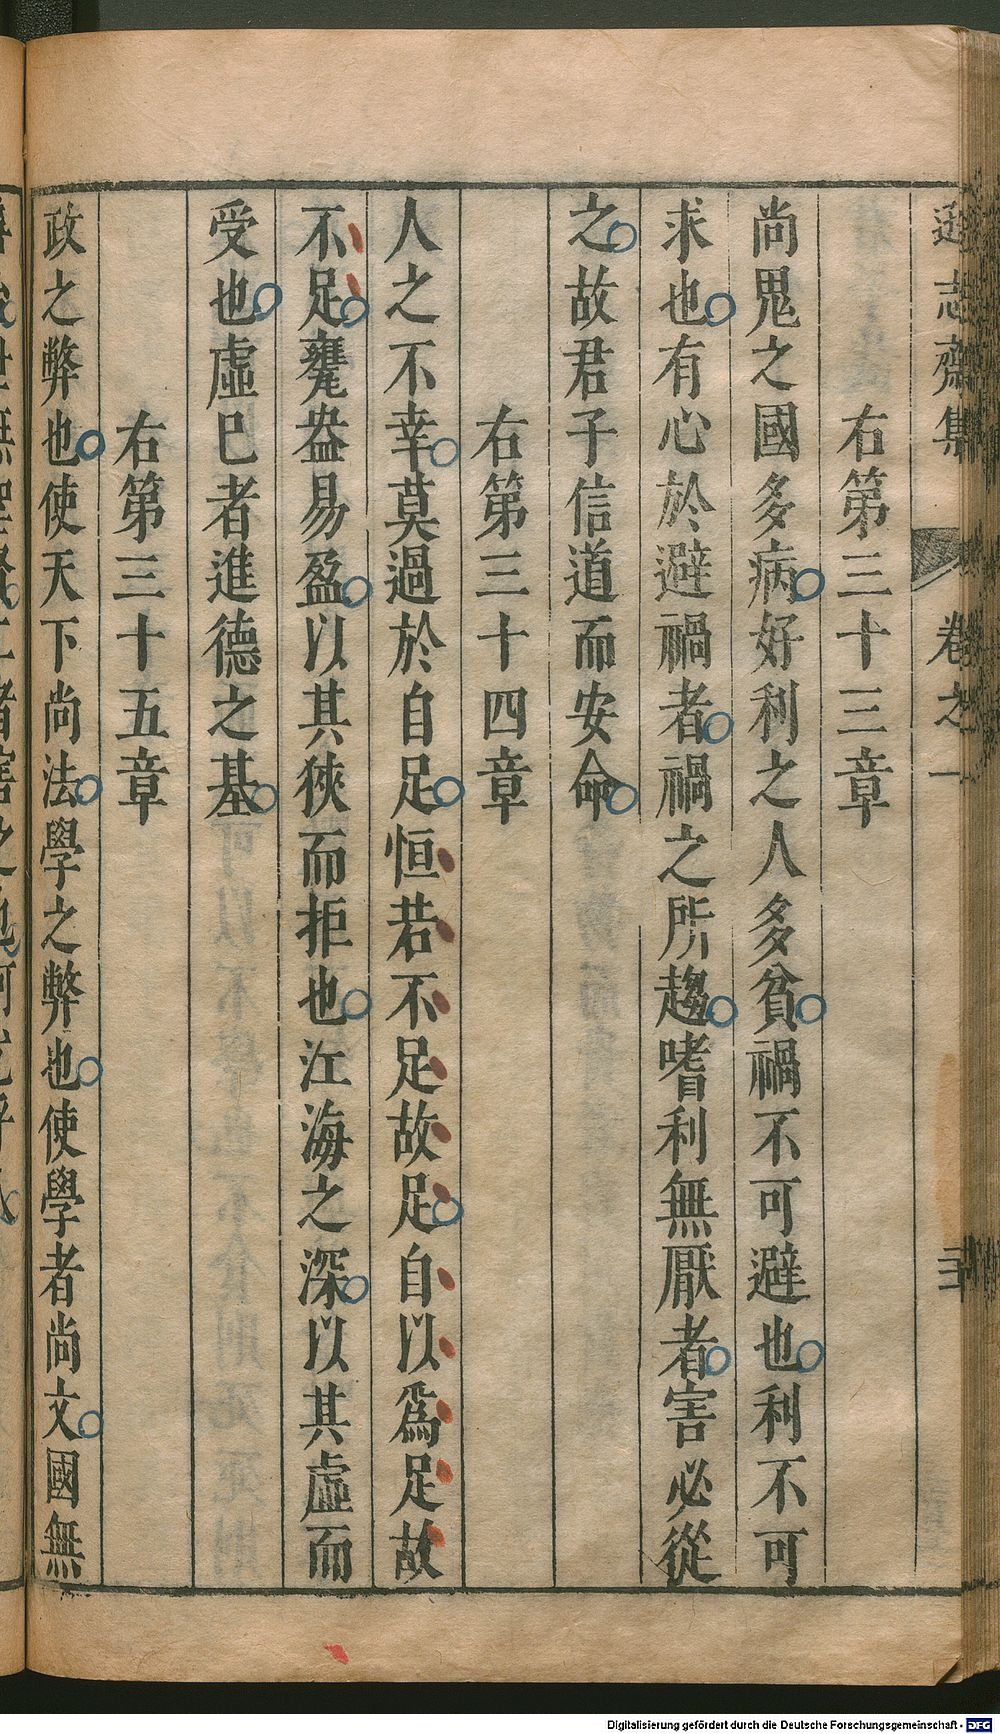 遜志齋集 卷之一 二十
右第三十三章
尚鬼之國多病好利之人多貧禍不可避也利不可
求也有心於避禍者禍之所趨嗜利無厭者害必從
之故君子信道而安命
右第三十四章
人之不幸莫過於自足恒若不足故足自以爲足故
不足甕盎易盈以其狹而拒也江海之深以其虛而
受也虛巳者進德之基
右第三十五章
政之弊也使天下尚法學之弊也使學者尚文國無
Digitalisierung gefördert durch die Deutsche Forschungsgemeinschaft - DFG